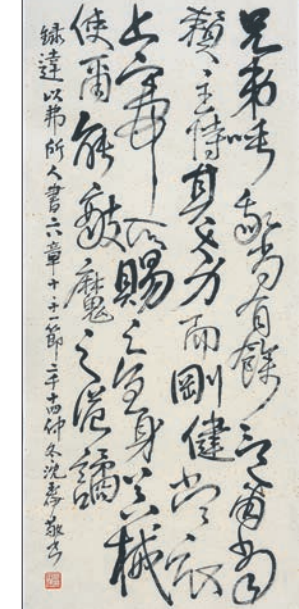 兄弟呼我尚有餘言爾當
賴主恃其大力而剛健當衣
上帝所賜之全身械
使爾能敵魔之詭譎
錄達以弗所人書六章十至十一節二千十四仲冬沈敬書